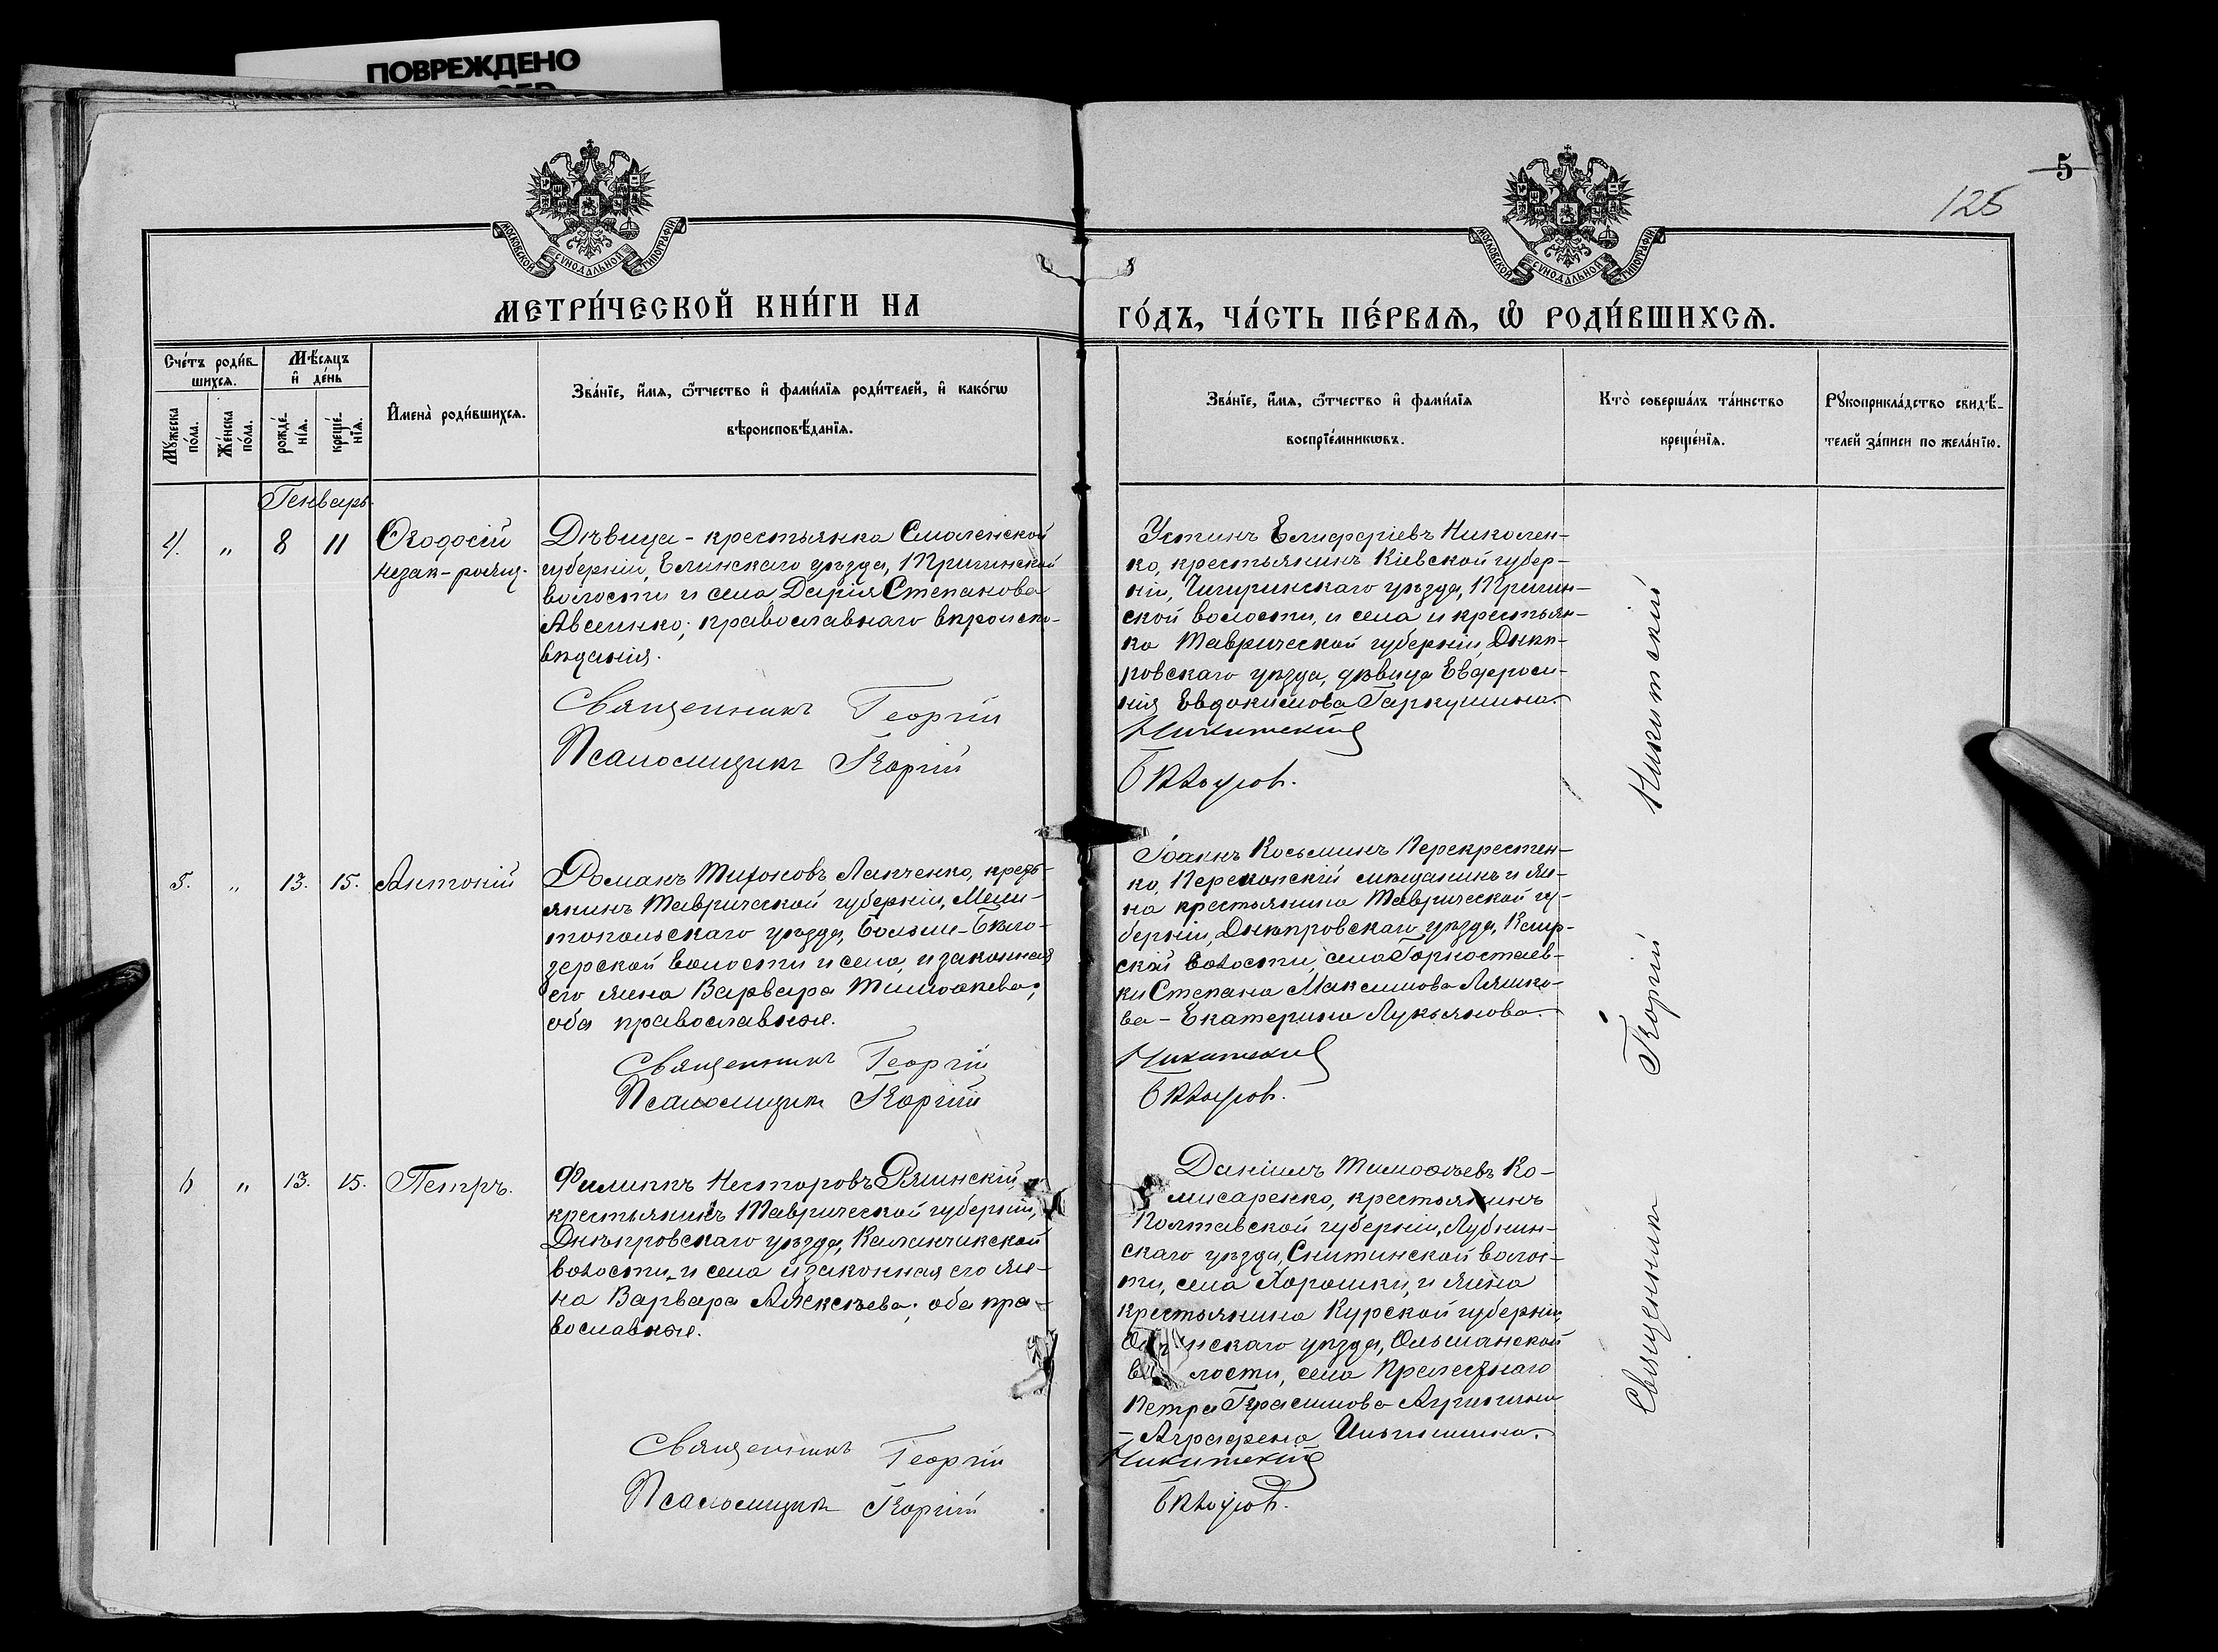 ПОВРЕЖДЕНО
5
125
МОСКОВСКОЙ СѴНОДАЛЬНОЙ ТИПОГРАФІИ
МОСКОВСКОЙ СѴНОДАЛЬНОЙ ТИПОГРАФІИ
МЕТРИ́ЧЕСКОЙ КНИ́ГИ НА
ГО́ДЪ, ЧА́СТЬ ПЕ́РВАѦ, Ѽ РОДИ́ВШИХСѦ.
Сче́тъ роди́в-
шихсѧ.
Мꙋ́жеска по́ла.
Же́нска по́ла.
Мѣ́сѧцъ
и҆ де́нь
рожде́-
нїѧ.
креще́-
нїѧ.
И҆мена̀ роди́вшихсѧ.
Зва́нїе, и҆́мѧ, ѻ҆́тчество и҆ фами́лїѧ роди́телей, и҆ како́гѡ
вѣроисповѣ́данїѧ.
Зва́нїе, и҆́мѧ, ѻ҆́тчество и҆ фами́лїѧ
воспрїе́мникѡвъ.
Кто̀ соверша́лъ та́инство
креще́нїѧ.
Рꙋкоприкла́дство свидѣ́-
телей за́писи по жела́нїю.
Генварь.
4. " 8 11 Ѳеодосій
незак-рожд.
Дѣвица - крестьянка Смоленской
губерніи, Елинскаго уѣзда,
волости и села Дарія Степанова
Авсеенко; православнаго вѣроиспо-
вѣданія.
Священникъ Георгій
Псаломщикъ Георгій
Устинъ Елифѳріевъ Николен-
ко, крестьянинъ Кіевской губер-
ніи, Чигиринскаго уѣзда,
ской волости, и села и крестьян-
ка Таврической губерніи, Днѣп-
ровскаго уѣзда, дѣвица Евфроси-
нія Евдокимова Гаркушина.
Никитскій
5. " 13. 15. Антоній
Романъ Тихоновъ Лапченко, крест-
янинъ Таврической губерніи, Мели-
топольскаго уѣзда, Больше-Бѣло-
зерской волости и села, и законная
его жена Варвара Тимоѳеева;
оба православные.
Священникъ Георгій
Псаломщикъ Георгій
Іоаннъ Косьминъ Перекрестен-
ко, Перекопскій мѣщанинъ и же-
на крестьянина Таврической гу-
берніи, Днѣпровскаго уѣзда, Каир-
ской волости, села Горностаев-
ки Степана Максимова Ляшко-
ва - Екатерина Лукьянова.
Никитскій
6 " 13. 15. Петръ.
Филиппъ Несторовъ Ряшинскій,
крестьянинъ Таврической губерніи,
Днѣпровскаго уѣзда, Каланчакской
волости и села и законная его же-
на Варвара Алексѣева; оба пра-
вославные.
Священникъ Георгій
Псаломщикъ Георгій
Даніилъ Тимоѳѣевъ Ко-
мисаренко, крестьянинъ
Полтавской губерніи, Лубнин-
скаго уѣзда, Снитинской волос-
ти, села Хорошки, и жена
крестьянина Курской губерніи,
нскаго уѣзда, Ольшанской
волости, села Прелестнаго
Петра Герасимова
- Аграфена
Никитскій
Священникъ Георгій Никитскій